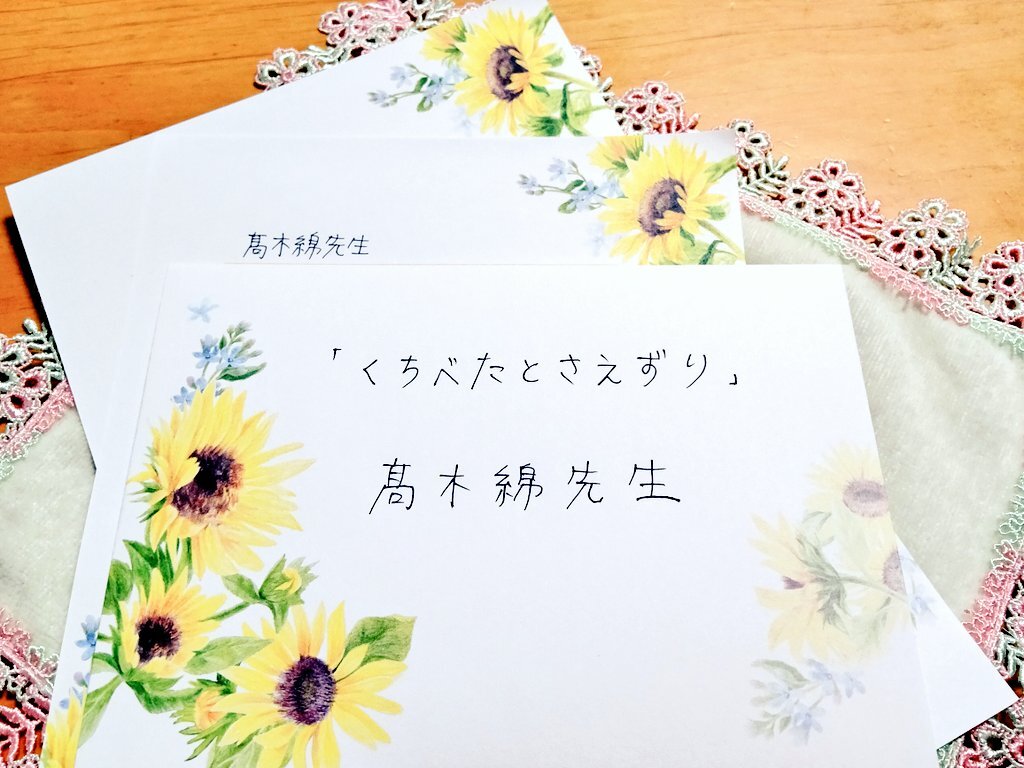 髙木綿先生
「くちべたとさえずり」
髙木綿先生